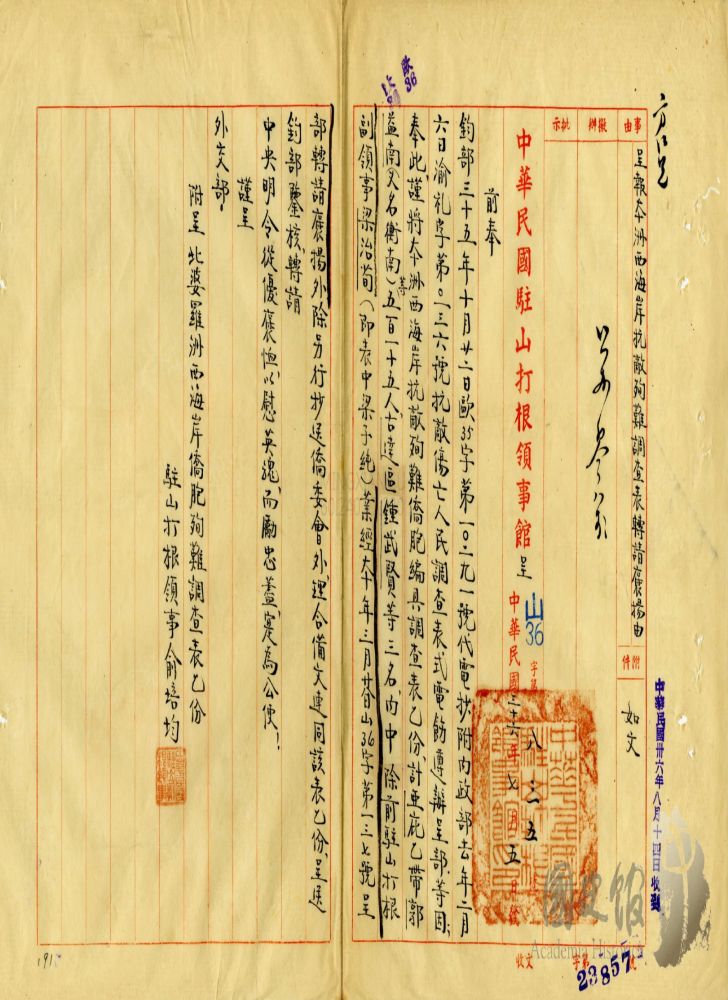 事由
擬辦
批示
呈報本洲西海岸抗敵殉難調查表轉請褒揚由
附件
如文
中華民國卅六年八月十四日收到
中華民國駐山打根領事館呈
山36字第八三五號
中華民國三十六年七月五日
前奉
鈞部三十五年十月廿二日歐35字第一〇二九一號代電抄附內政部去年二月
六日渝礼字第〇一三六號抗敵傷亡人民調查表式電飭遵辦呈部等因；
奉此，謹將本洲西海岸抗敵殉難僑胞編具調查表乙份，計亞庇乙帶郭
益南（又名衡南）等五百一十五人，古達區鍾武賢等三名，內中除前駐山打根
副領事梁治荀（即表中梁子純）業經本年三月 山36字第一三七號呈
部轉請褒揚外，除另行抄送僑委會外，理合備文連同該表乙份，呈送
鈞部鑒核，轉請
中央明令從優褒恤，以慰英魂，而勵忠藎，寔為公便！
謹呈
外交部。
附呈北婆羅洲西海岸僑胞殉難調查表乙份
駐山打根領事俞培均
歐36
國史館
Academia Historica
收文 字第23857號
191